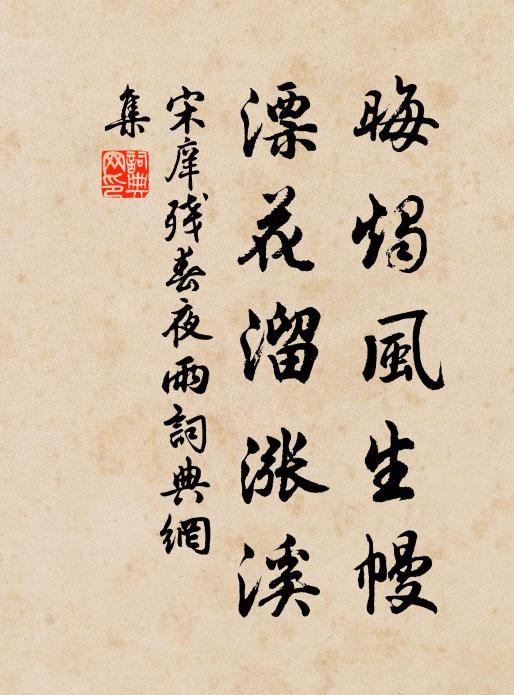 晦燭風生幔
漂花溜漲溪
宋庠殘春夜雨詞典網
集
詞典
网印